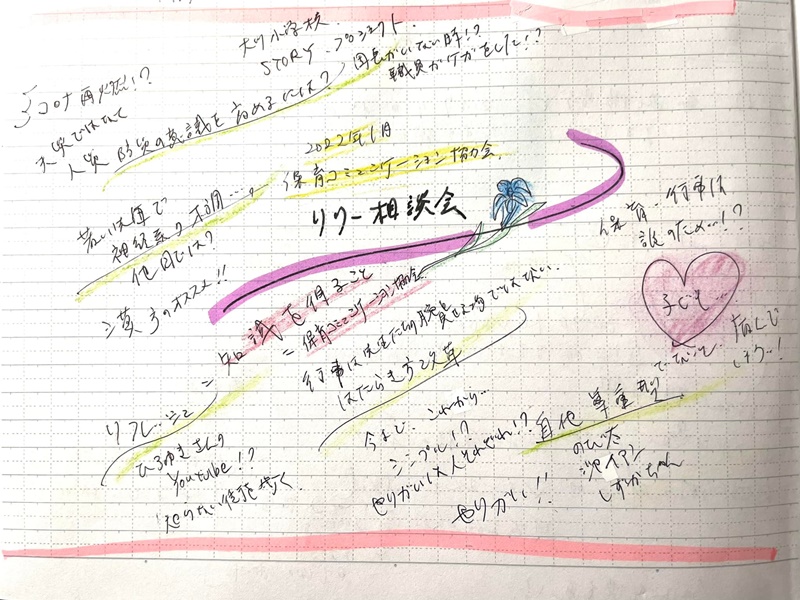 大川小学校
STORY プロジェクト
園長がいない時!?
職員がケガをした!?
コロナ再燃!?
天災ではなくて
人災 防災の意識を高めるには?
2022年6月
保育コミュニケーション協会
リリー相談会
若い保育で
神経系の不調…
他園では?
保育…行事は
誰のため…!?
子ども…
三葉子のオススメ!!
= 知識を得ること
= 保育コミュニケーション協会
行事は先生たちの職員じゃ場ではない。
はたらき方改革
リフレ…ミニ
ひろゆきさんの
Youtube!?
知らない街を歩く
今まで、これから…
シンプル!?
やりがいは人それぞれ!?
やりがい!!
自他尊重型
で…ないと… 病んで
しまう…!
のび太
ジャイアン
しずかちゃん